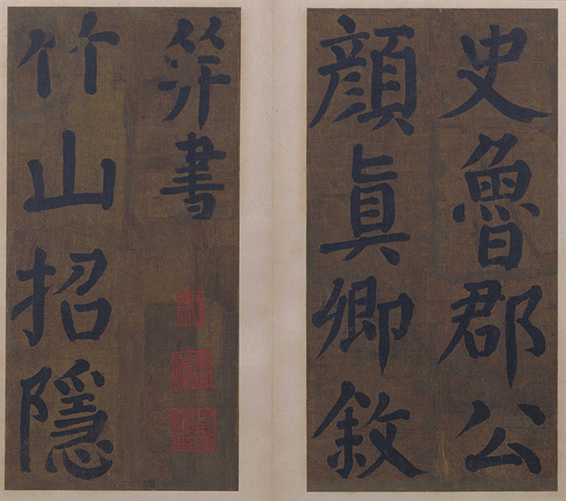 史魯郡公
顏真卿敘
并書
竹山招隱